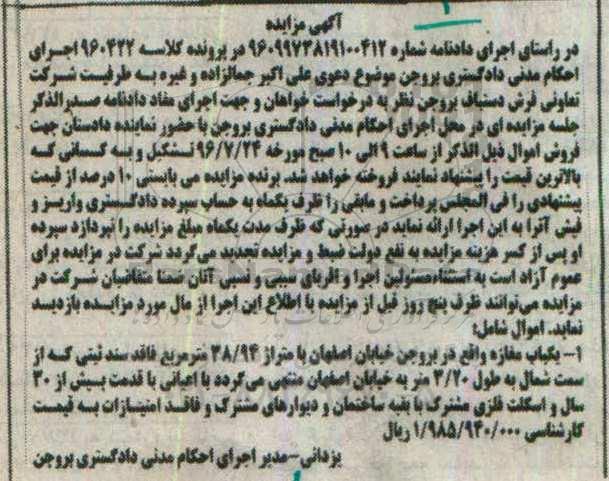 آگهی مزایده
در راستای اجرای دادنامه شماره ۹۶۰۹۹۷۳۸۱۹۱۰۰۴۱۲ در پرونده کلاسه ۹۶۰۴۲۲ اجرای
احکام مدنی دادگستری بروجن موضوع دعوی علی اکبر جمالزاده و غیره به طرفیت شرکت
تعاونی فرش دستباف بروجن نظر به درخواست خواهان و جهت اجرای مفاد دادنامه صدرالذکر
جلسه مزایده ای در محل اجرای احکام مدنی دادگستری بروجن با حضور نماینده دادستان جهت
فروش اموال ذیل الذکر از ساعت ۹ الی ۱۰ صبح مورخه ۹۶/۷/۲۴ تشکیل و به کسانی که
بالاترین قیمت را پیشنهاد نمایند فروخته خواهد شد. برنده مزایده می بایستی ۱۰ درصد از قیمت
پیشنهادی را فی المجلس پرداخت و مابقی را ظرف یکماه به حساب سپرده دادگستری واریز و
فیش آنرا به این اجرا ارائه نماید در صورتی که ظرف مدت یکماه مبلغ مزایده را نپردازد سپرده
او پس از کسر هزینه مزایده به نفع دولت ضبط و مزایده تجدید می گردد شرکت در مزایده برای
عموم آزاد است به استثناءمسئولین اجرا و اقربای سببی و نسبی آنان ضمنا متقاضیان شرکت در
مزایده می‌توانند ظرف پنج روز قبل از مزایده با اطلاع این اجرا از مال مورد مزایده بازدید
نماید. اموال شامل:
۱- یکباب مغازه واقع در بروجن خیابان اصفهان با متراژ ۳۸/۹۴ مترمربع فاقد سند ثبتی که از
سمت شمال به طول ۳/۲۰ متر به خیابان اصفهان منتهی می‌گردد با اعیانی با قدمت بیش از ۳۰
سال و اسکلت فلزی مشترک با بقیه ساختمان و دیوارهای مشترک و فاقد امتیازات به قیمت
کارشناسی ۱/۹۸۵/۹۴۰/۰۰۰ ریال
یزدانی-مدیر اجرای احکام مدنی دادگستری بروجن